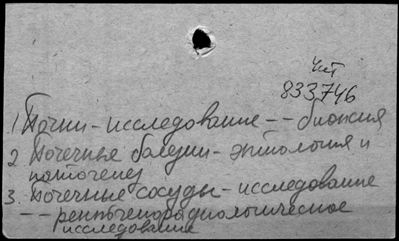 Чит
833746
1 Почки - исследование -- биопсия
2 Почечные болезни - этиология и
патогенез
3. Почечные сосуды - исследование
-- рентгенорадиологическое
исследование